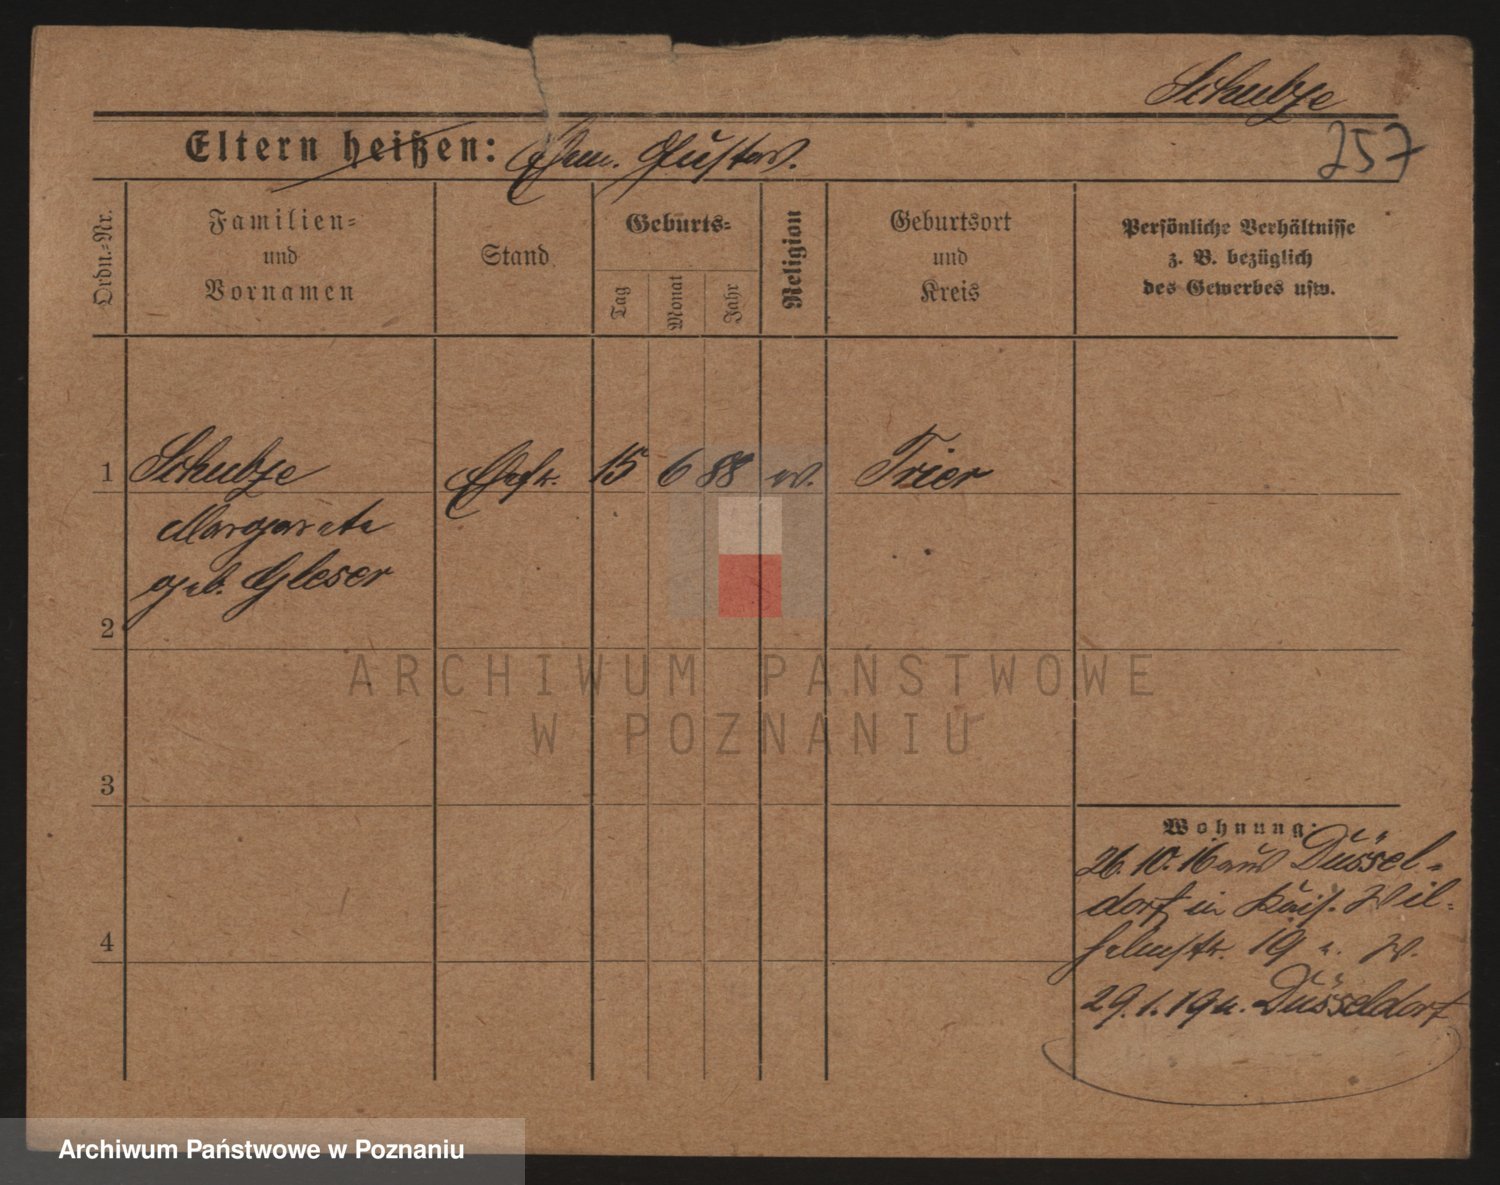 Schubze
257
Eltern heißen: Ehem. Gustav.
Ordn.-Nr.
Familien-
und
Vornamen
Stand
Geburts-
Tag
Monat
Jahr
Religion
Geburtsort
und
Kreis
Persönliche Verhältnisse
z. B. bezüglich
des Gewerbes usw.
1 Schubze Ehefr. 15 6 88 ev. Trier
Margarete
geb. Gleser
2
3
4
Wohnung:
26.10.16 aus Düssel-
dorf in Kais. Wil-
helmstr. 19 b. W.
29.1.19 n. Düsseldorf
ARCHIWUM PAŃSTWOWE
W POZNANIU
Archiwum Państwowe w Poznaniu